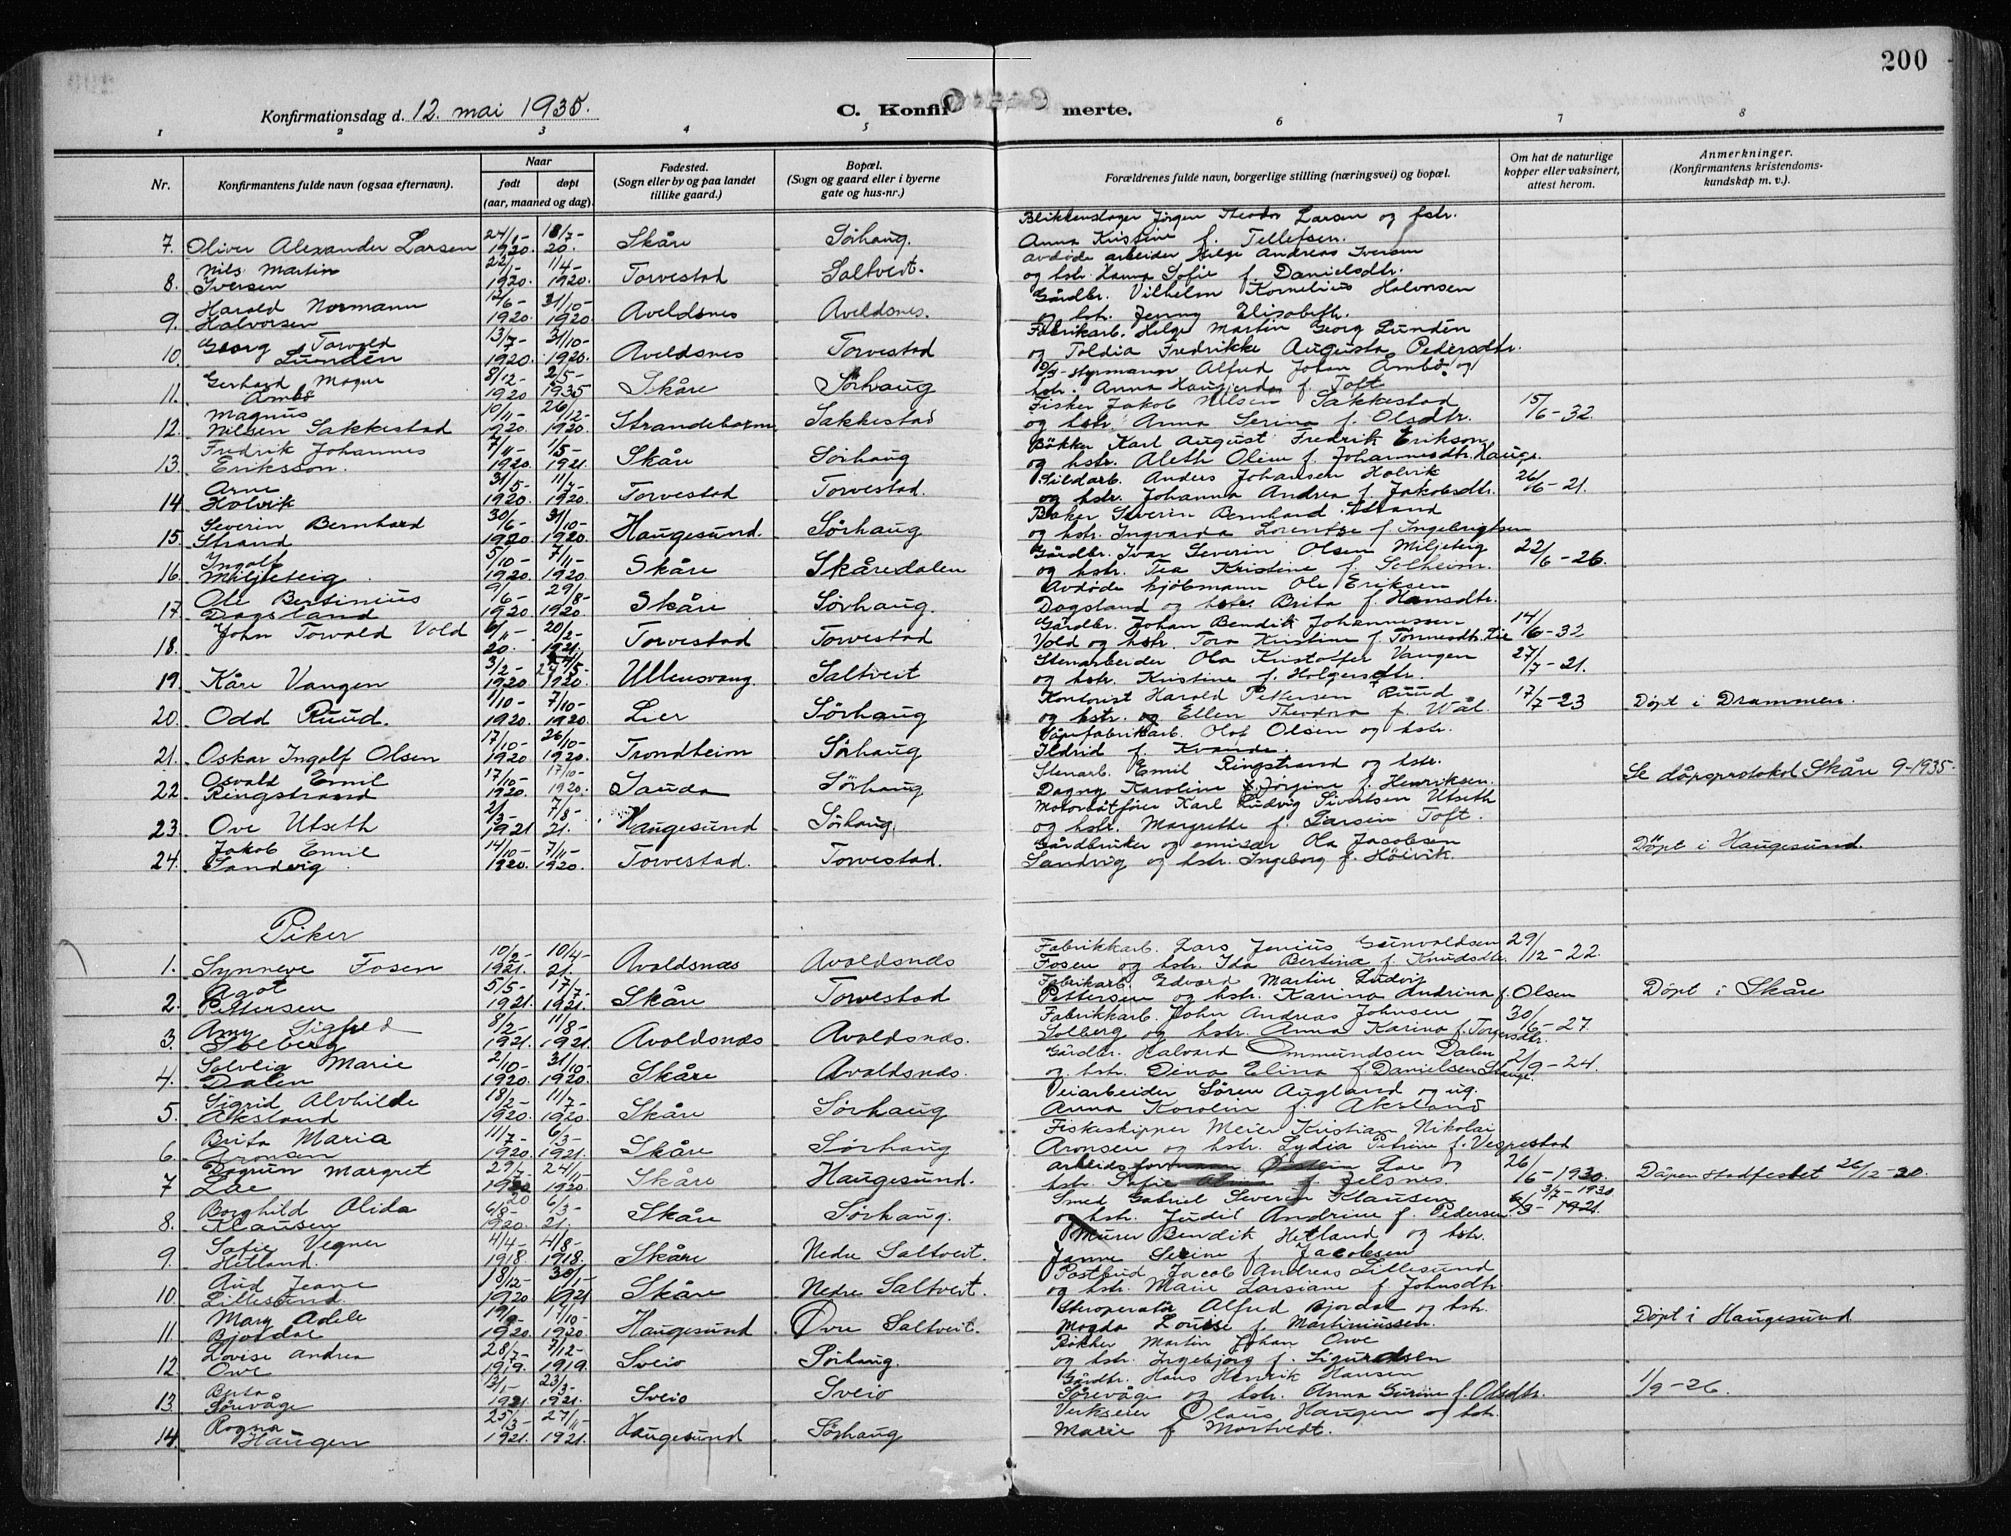 200
Konfirmationsdag d. 12. mai 1935.
C. Konfirmerte.
1 2 3 4 5 6 7 8
Nr.
Konfirmantens fulde navn (ogsaa efternavn).
Naar
født
døpt
(aar, maaned og dag).
Fødested.
(Sogn eller by og paa landet
tillike gaard.)
Bopæl.
(Sogn og gaard eller i byerne
gate og hus-nr.)
Forældrenes fulde navn, borgerlige stilling (næringsvei) og bopæl.
Om hat de naturlige
kopper eller vaksinert,
attest herom.
Anmerkninger.
(Konfirmantens kristendoms-
kundskap m. v.).
7. Oliver Alexander Larsen 24/1- 1920. 18/7- 20. Skåre Sørhaug. Blikkenslager Jørgen Theodor Larsen og hstr.
Anna Kristine f. Tellefsen.
8. Nils Martin Iversen 22/1- 1920. 1/4- 1920. Torvestad Saltveit. Avdøde arbeider Helge Andreas Iversen
og hstr. Hanna Sofie f. Danielsdtr.
9. Harald Normann Halvorsen 12/6- 1920. 31/10- 1920. Aveldsnes Aveldsnes. Gårdbr. Vilhelm Kornelius Halvorsen
og hstr. Jenny Elisabeth.
10. Georg Torvald Lundén 13/7- 1920. 31/10- 1920. Aveldsnes Torvestad Fabrikarb. Helge Martin Georg Lundén
og Toldia Fredrikke Augusta Pedersdtr.
11. Gerhard Magne Ambø 8/12- 1920 2/5- 1935 Skåre Sørhaug styrmann Alfred Johan Ambø og
hstr. Anna f. Toft
12. Magnus Nilsen Sakkestad 10/11- 1920. 26/12- 1920. Strandebarm Sakkestad Fisker Jakob Nilsen Sakkestad 15/6-32
og hstr. Anna Serina f. Olsdtr.
13. Fredrik Johannes Eriksson. 7/11- 1920 1/5- 1921. Skåre Sørhaug Bøkker Karl August Fredrik Erikson
og hstr. Aleth Oline f. Johannesdtr. Hauge.
14. Arne Holvik 31/5- 1920 11/7- 1920. Torvestad Torvestad. Sildarb. Anders Johansen Holvik 26/6-21.
og hstr. Johanna Andrea f. Jakobsdtr.
15. Severin Bernhard Strand 30/6- 1920 31/10- 1920 Haugesund. Sørhaug Baker Severin Bernhard Strand
og hstr. Ingvarda Lorentse f. Ingebrigtsen
16. Ingolf Miljeteig 5/10- 1920. 7/11- 1920. Skåre Skåredalen Gårdbr. Ivar Severin Olsen Miljeteig 22/6-26.
og hstr. Tea Kristine f. Solheim.
17. Ole Bertinius Dagsland 9/6- 1920 29/8- 1920 Skåre Sørhaug. Avdøde kjøbmann Ole Eriksen
Dagsland og hstr. Brita f. Hansdtr.
18. John Torvald Vold 6/11- 20. 20/2- 1921. Torvestad Torvestad Gårdbr. Johan Bendik Johannessen 14/6-32
Vold og hstr. Tora Kristine f. Tønnesdtr. Lie
19. Kåre Vangen 3/2- 1920 1920. Ullensvang. Saltveit Stenarbeider Ola Kristoffer Vangen 27/7-21.
og hstr. Kristine f. Holgersdtr.
20. Odd Ruud. 1/10- 1920 7/10- 1920. Lier Sørhaug Kontorist Harald Pettersen Ruud 17/7-23 Døpt i Drammen.
og hstr. og Ellen Theodora f. Wål.
21. Oskar Ingolf Olsen 17/10- 1920 26/10- 1920. Trondheim Sørhaug Såpefabrikarb. Olof Olsen og hstr.
Ildrid f. Kvande.
22. Osvald Emil Ringstrand 17/10- 1920. 17/10- 1920. Sauda Sørhaug Stenarb. Emil Ringstrand og hstr. Se dåpsprotokol Skåre 9-1935.
Dagny Karoline Jørgine f. Henriksen.
23. Ove Utseth 2/3- 1921 7/8- 21. Haugesund Sørhaug. Motorbåtfører Karl Ludvig Sivertsen Utseth
og hstr. Margrethe f. Larsen Toft.
24. Jakob Emil Sandvig. 14/10- 1920. 7/11- 1920. Torvestad. Torvestad. Gårdbruker og emisær Ola Jacobsen Døpt i Haugesund.
Sandvig og hstr. Ingeborg f. Hölvik.
Piker
1. Synnøve Fosen 10/2- 1921. 10/4- 21. Avaldsnæs Avaldsnæs Fabrikkarb. Lars Jenius Gunvaldsen 29/12-22.
Fosen og hstr. Ida Bertina f. Knudsdtr.
2. Agot Pettersen 5/5- 1921. 17/7- 1921. Skåre Torvestad Fabrikarb. Edvard Martin Ludvig Døpt i Skåre
Pettersen og hstr. Karina Andrina f. Olsen
3. Amy Sigfred Solberg 8/2- 1921. 11/8- 1921. Avaldsnæs Avaldsnæs. Fabrikkarb. John Andreas Johnsen 30/6-27
Solberg og hstr. Anna Karina f. Torgersdtr.
4. Solveig Marie Dalen 2/10- 1920. 31/10- 1920. Skåre Avaldsnæs. Gårdbr. Halvard Ommundsen Dalen 2/9-24.
og hstr. Dina Elina f. Danielsen Stange.
5. Sigrid Alvhilde Aksland 18/2- 1920. 11/7- 1920. Skåre Sørhaug Veiarbeider Søren Augland og ug.
Anna Karolin f. Aksland
6. Brita Maria Aronsen 11/7- 1920. 6/3- 1921. Skåre Sørhaug Fiskeskipper Meier Kristian Nikolai
Aronsen og hstr. Lydia Petrine f. Vespestad
7 Dagrun Margret Lae 29/7- 1920 24/11- 1920. Skåre Haugesund. Arbeidsformann Lae og 26/6-1930. Dåpen stadfestet 26/12-20.
hstr. Sofie f. Jelsnes.
8. Borghild Alida Klausen 6/8- 1920. 6/3- 21. Skåre Sørhaug. Smed Gabriel Severin Klausen 3/7-1930
og hstr. Judit Andrine f. Pedersen. 6/9-1921.
9. Sofie Vegner Hetland. 4/4- 1918. 4/8- 1918. Skåre Nedre Saltveit. Murer Bendik Hetland og hstr.
Janne Serine f. Jacobsen
10. Aud Jeane Lillesund. 18/12- 1920 30/1- 1921 Skåre Nedre Saltveit. Postbud Jacob Andreas Lillesund
og hstr. Marie Larsiane f. Johnsdtr.
11. Mary Adele Bjordal 19/9- 1920. 17/10- 1920 Haugesund Øvre Saltveit. Alfred Bjordal og hstr. Døpt i Haugesund
Magda Louise f. Martinussen.
12 Lovise Andrea Owe 28/7- 1919. 7/12- 1919. Sveio Sørhaug. Bøkker Martin Johan Owe
og hstr. Ingebjørg f. Sigurdsen
13. Berta Sørevåge 13/1- 1921 23/3- 1921. Sveio Sveio Gårdbr. Hans Henrik Hansen 1/9-26.
Sørevåge og hstr. Anna Gurine f. Olsdtr.
14. Ragna Haugen 25/3- 1921. 27/11- 1921. Haugesund Sørhaug Verkseier Olaus Haugen og hstr.
Marie f. Mortvedt.